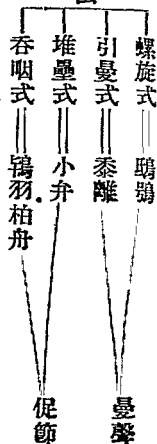 螺旋式＝鴟鴞
引曼式＝黍離
堆壘式＝小弁
吞咽式＝鴇羽柏舟
曼聲
促節